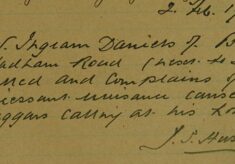 2. Feb. 19
S. Ingram Daniels of B
Wadham Road (next to
called and complains of
incessant nuisance caused
beggars calling at his ho
J. S.